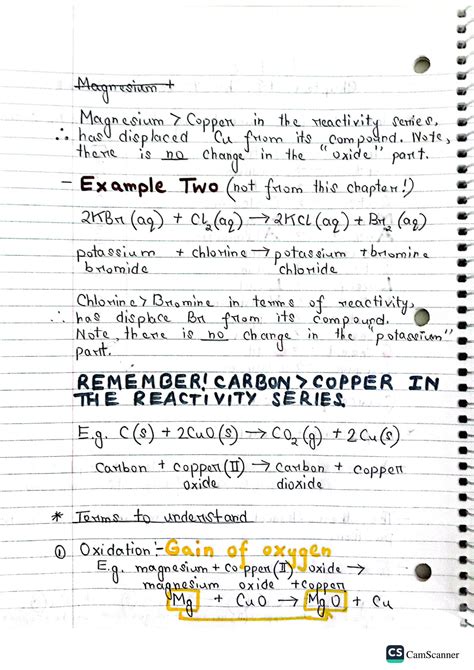 Magnesium +
Magnesium > Copper in the reactivity series,
∴ has displaced Cu from its compound. Note,
there is no change in the "oxide" part.
- Example Two (not from this chapter!)
2KBr (aq) + Cl₂(aq) → 2KCl (aq) + Br₂ (aq)
potassium + chlorine → potassium + bromine
bromide chloride
Chlorine > Bromine in terms of reactivity,
∴ has displace Br from its compound.
Note, there is no change in the "potassium"
part.
REMEMBER! CARBON > COPPER IN
THE REACTIVITY SERIES.
E.g. C(s) + 2CuO(s) → CO₂(g) + 2Cu(s)
Carbon + copper(II) → carbon + copper
oxide dioxide
* Terms to understand
① Oxidation:- Gain of oxygen
E.g. magnesium + copper(II) oxide →
magnesium oxide + copper
Mg + CuO → MgO + Cu
CS CamScanner